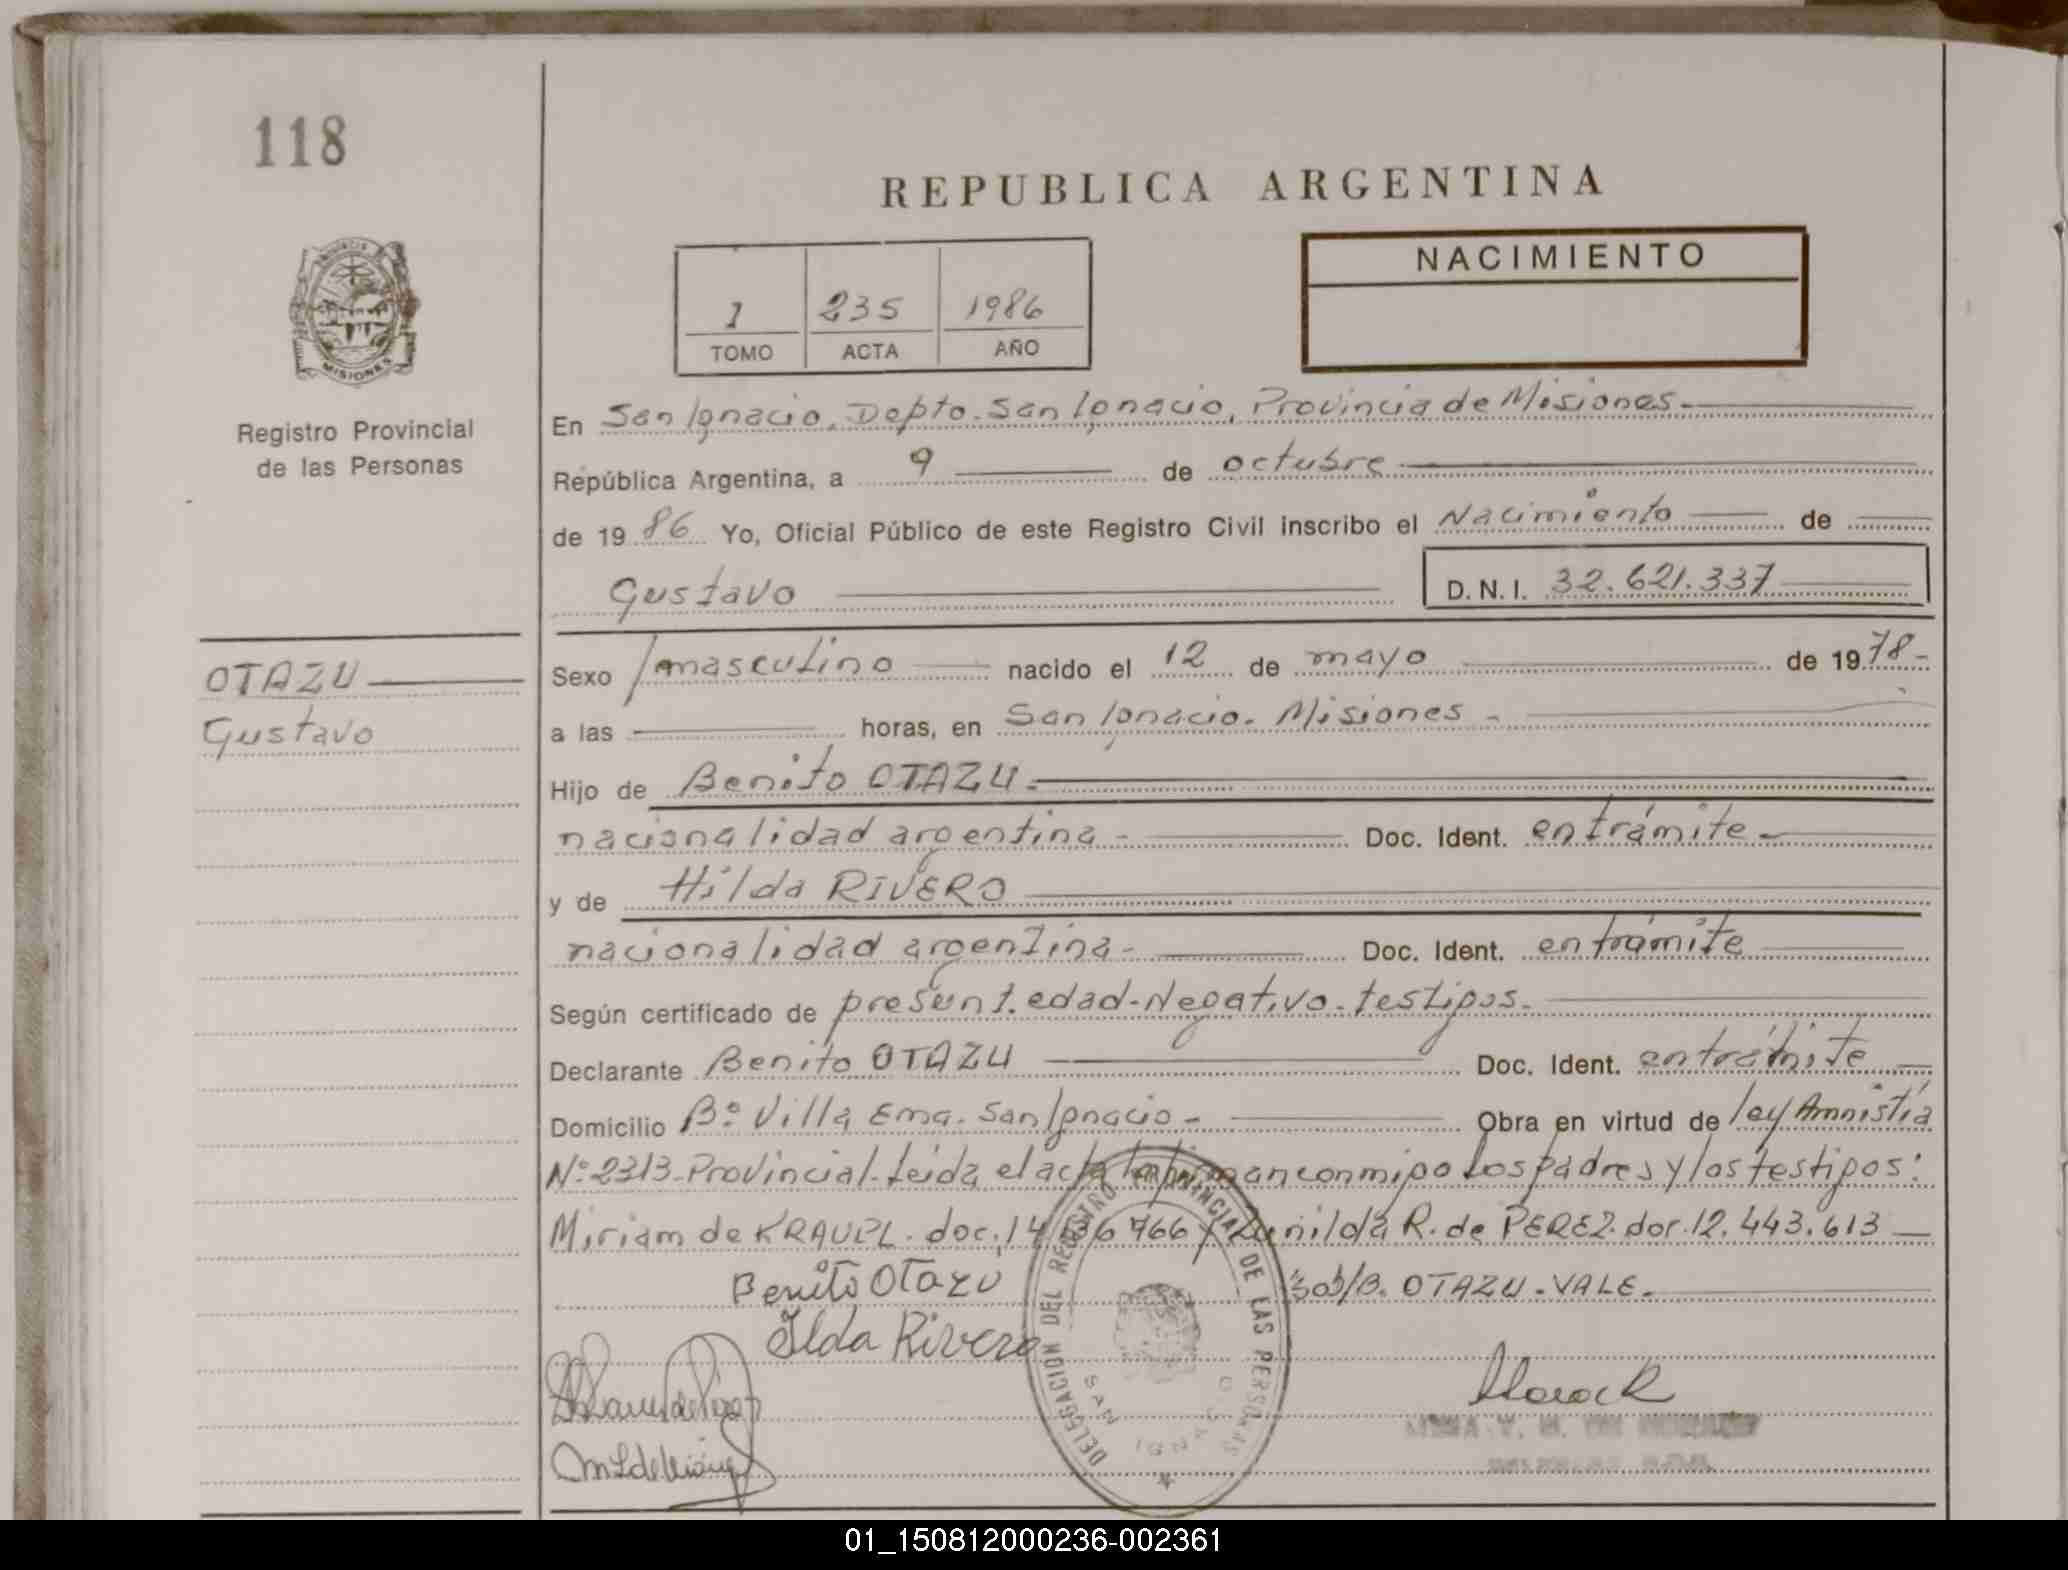 118
REPUBLICA ARGENTINA
PROVINCIA DE
MISIONES
Registro Provincial
de las Personas
1 235 1986
TOMO ACTA AÑO
NACIMIENTO
En San Ignacio, Depto. San Ignacio, Provincia de Misiones.-
República Argentina, a 9 de octubre
de 1986 Yo, Oficial Público de este Registro Civil inscribo el Nacimiento de
Gustavo D.N.I. 32.621.337
OTAZU
Gustavo
Sexo masculino nacido el 12 de mayo de 1978-
a las horas, en San Ignacio. Misiones -
Hijo de Benito OTAZU.
nacionalidad argentina- Doc. Ident. en trámite-
y de Hilda RIVERO
nacionalidad argentina- Doc. Ident. en trámite
Según certificado de presunt. edad-Negativo-testigos.
Declarante Benito OTAZU Doc. Ident. en trámite
Domicilio Bº Villa Ema. San Ignacio- Obra en virtud de ley Amnistía
Nº 2313-Provincial-Leida el acta la firman conmigo los padres y los testigos:
Miriam de doc. 14 766 y R. de PEREZ. doc. 12.443.613
Benito Otazu /B. OTAZU-VALE.
Ilda Rivero
DELEGACION DEL REGISTRO PROVINCIAL DE LAS PERSONAS
SAN IGNACIO
01_150812000236-002361